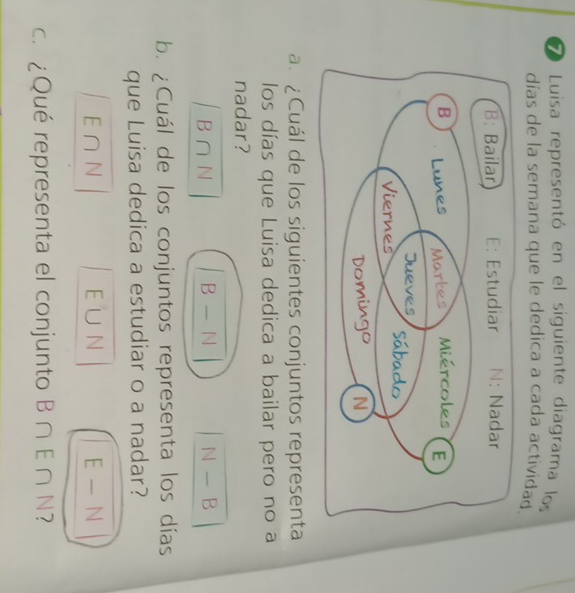 7 Luisa representó en el siguiente diagrama los
días de la semana que le dedica a cada actividad.
B: Bailar E: Estudiar N: Nadar
B E
Lunes Martes Miércoles
Jueves
Viernes Sábado
Domingo N
a. ¿Cuál de los siguientes conjuntos representa
los días que Luisa dedica a bailar pero no a
nadar?
B ∩ N B − N N − B
b. ¿Cuál de los conjuntos representa los días
que Luisa dedica a estudiar o a nadar?
E ∩ N E ∪ N E − N
c. ¿Qué representa el conjunto B ∩ E ∩ N?